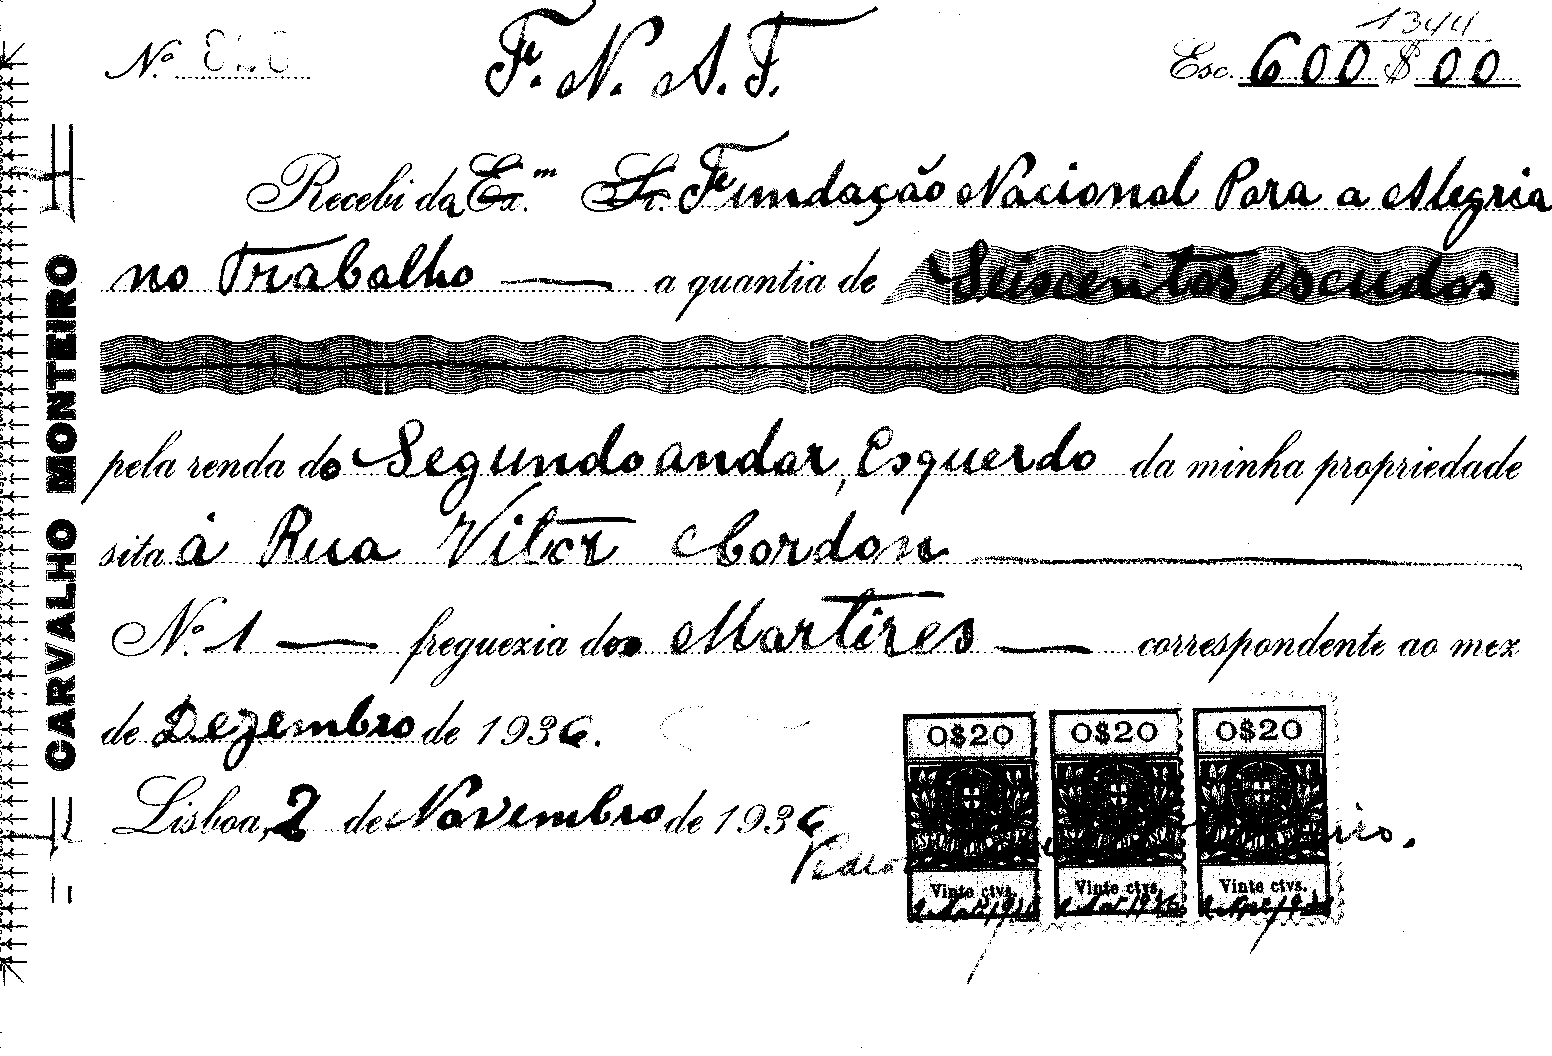 1344
Nº F. N. A. T. Esc. 600$00
Recebi da Exmª Sr. Fundação Nacional Para a Alegria
no Trabalho — a quantia de Seiscentos escudos
pela renda do Segundo andar, Esquerdo da minha propriedade
sita á Rua Vitor Cordon
Nº 1 — freguezia dos Martires — correspondente ao mez
de Dezembro de 1936.
Lisboa, 2 de Novembro de 1936
Pedro
0$20 0$20 0$20
Vinte ctvs. Vinte ctvs. Vinte ctvs.
CARVALHO MONTEIRO